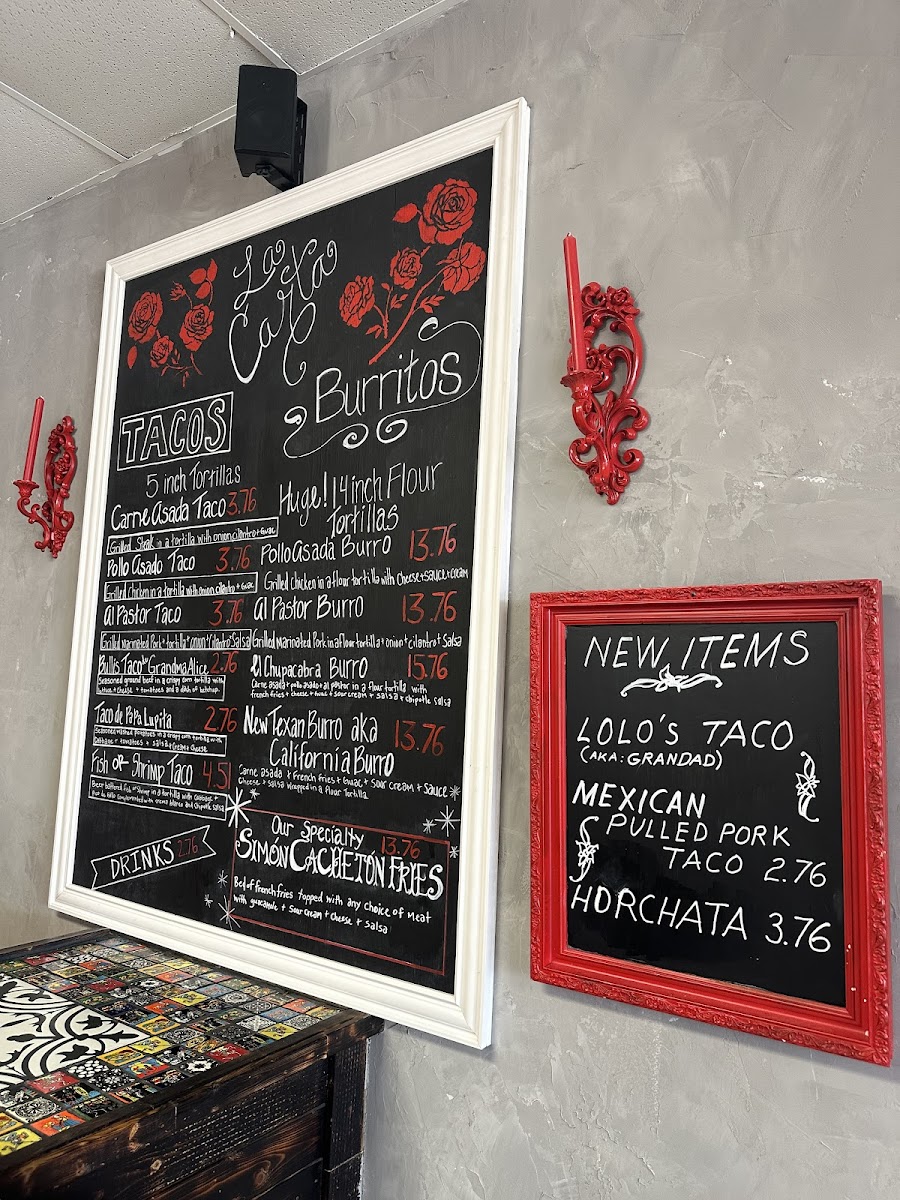 La
Carta
TACOS
5 inch Tortillas
Carne Asada Taco 3.76
Grilled Steak in a tortilla with onion cilantro + Guac
Pollo Asado Taco 3.76
Grilled Chicken in a tortilla with onion cilantro + Guac
al Pastor Taco 3.76
Grilled Marinated Pork + tortilla + onion + Cilantro + Salsa
Bulls Taco by Grandma Alice 2.76
Seasoned ground beef in a crispy corn tortilla with
lettuce + cheese + tomatoes and a dash of ketchup.
Taco de Papa Lupita 2.76
Seasoned mashed potatoes in a crispy corn tortilla with
Cabbage + tomatoes + salsa + cream + cheese
Fish or Shrimp Taco 4.51
Beer battered fish or shrimp in a tortilla with cabbage +
Pico de Gallo complemented with crema blanca and Chipotle salsa
DRINKS 2.76
Burritos
Huge! 14 inch Flour
Tortillas
Pollo Asada Burro 13.76
Grilled Chicken in a flour tortilla with cheese + sauce + cream
al Pastor Burro 13.76
Grilled Marinated Pork in a flour tortilla + onion + cilantro + Salsa
El Chupacabra Burro 15.76
Carne asada + pollo asado + al pastor in a flour tortilla with
french fries + cheese + guac + sour cream + salsa + chipotle salsa
New Texan Burro aka 13.76
California Burro
Carne asada + French fries + Guac + Sour Cream + Sauce
Cheese + salsa wrapped in a flour Tortilla.
Our Specialty 13.76
SIMÓN CACHETÓN FRIES
Bed of french fries topped with any choice of meat
with guacamole + sour cream + cheese + salsa
NEW ITEMS
LOLO'S TACO
(AKA: GRANDAD)
MEXICAN
PULLED PORK
TACO 2.76
HORCHATA 3.76